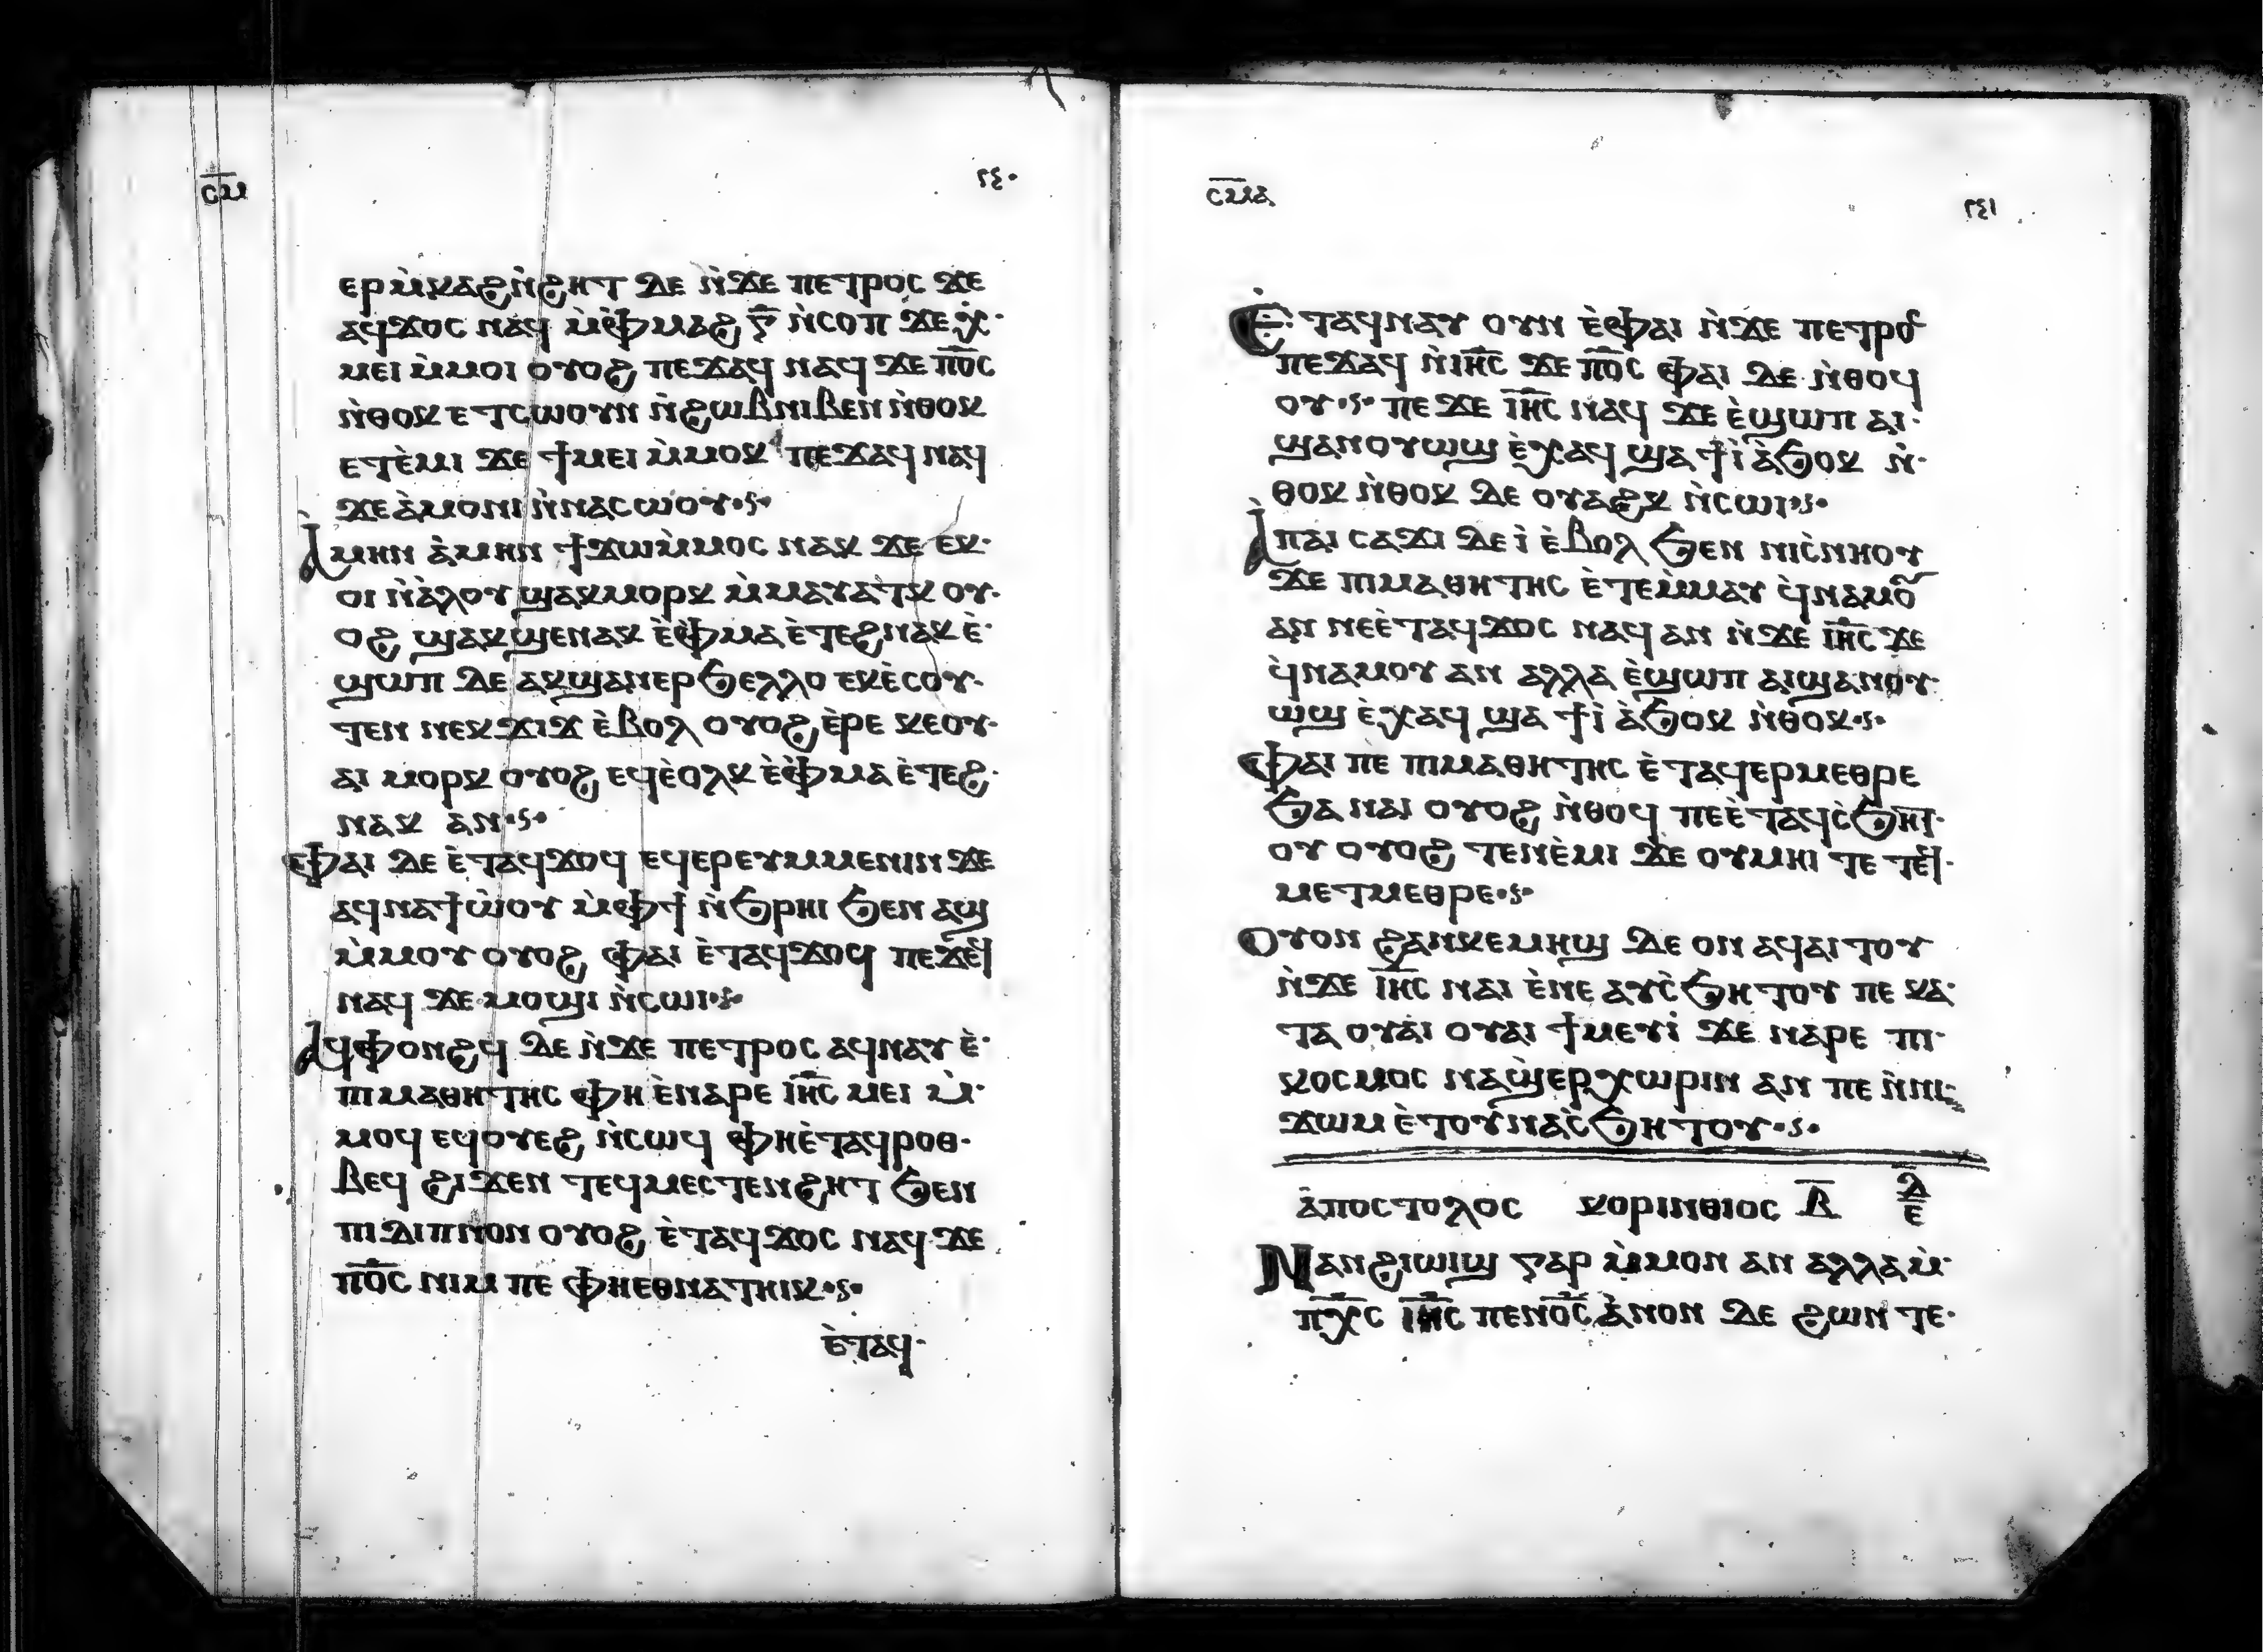 ⲥ̅ⲙ̅ ٢٤٠
ⲉⲣⲙ̀ⲕⲁϩⲛ̀ϩⲏⲧ ⲇⲉ ⲛ̀ϫⲉ ⲡⲉⲧⲣⲟⲥ ϫⲉ
ⲁϥϫⲟⲥ ⲛⲁϥ ⲙ̀ⲫⲙⲁϩ ⲅ̅ ⲛ̀ⲥⲟⲡ ϫⲉ ⲭ̀
ⲙⲉⲓ ⲙ̀ⲙⲟⲓ ⲟⲩⲟϩ ⲡⲉϫⲁϥ ⲛⲁϥ ϫⲉ ⲡ⳪
ⲛ̀ⲑⲟⲕ ⲉⲧⲥⲱⲟⲩⲛ ⲛ̀ϩⲱⲃ ⲛⲓⲃⲉⲛ ⲛ̀ⲑⲟⲕ
ⲉⲧⲉ̀ⲙⲓ ϫⲉ ϯⲙⲉⲓ ⲙ̀ⲙⲟⲕ ⲡⲉϫⲁϥ ⲛⲁϥ
ϫⲉ ⲁ̀ⲙⲟⲛⲓ ⲛ̀ⲛⲁⲉⲥⲱⲟⲩ
ⲁ̀ⲙⲏⲛ ⲁ̀ⲙⲏⲛ ϯϫⲱ ⲙ̀ⲙⲟⲥ ⲛⲁⲕ ϫⲉ ⲉⲕ
ⲟⲓ ⲛ̀ⲁ̀ⲗⲟⲩ ϣⲁⲕⲙⲟⲣⲕ ⲙ̀ⲙⲁⲩⲁⲧⲕ ⲟⲩ
ⲟϩ ϣⲁⲕϣⲉⲛⲁⲕ ⲉ̀ⲫⲙⲁ ⲉ̀ⲧⲉϩⲛⲁⲕ ⲉ̀
ϣⲱⲡ ⲇⲉ ⲁⲕϣⲁⲛⲉⲣϧⲉⲗⲗⲟ ⲉⲕⲉ̀ⲥⲟⲩ
ⲧⲉⲛ ⲛⲉⲕϫⲓϫ ⲉ̀ⲃⲟⲗ ⲟⲩⲟϩ ⲉ̀ⲣⲉ ⲕⲉⲟⲩ
ⲁⲓ ⲙⲟⲣⲕ ⲟⲩⲟϩ ⲉϥⲉ̀ⲟⲗⲕ ⲉ̀ⲫⲙⲁ ⲉ̀ⲧⲉϩ
ⲛⲁⲕ ⲁⲛ
ⲫⲁⲓ ⲇⲉ ⲉ̀ⲧⲁϥϫⲟϥ ⲉϥⲉⲣⲉⲩⲙⲙⲉⲛⲓⲛ ϫⲉ
ⲁϥⲛⲁϯⲱ̀ⲟⲩ ⲙ̀ⲫϯ ⲛ̀ϧⲣⲏⲓ ϧⲉⲛ ⲁϣ
ⲙ̀ⲙⲟⲩ ⲟⲩⲟϩ ⲫⲁⲓ ⲉ̀ⲧⲁϥϫⲟϥ ⲡⲉϫⲁϥ
ⲛⲁϥ ϫⲉ ⲙⲟϣⲓ ⲛ̀ⲥⲱⲓ
ⲁϥⲫⲟⲛϩϥ ⲇⲉ ⲛ̀ϫⲉ ⲡⲉⲧⲣⲟⲥ ⲁϥⲛⲁⲩ ⲉ̀
ⲡⲓⲙⲁⲑⲏⲧⲏⲥ ⲫⲏ ⲉ̀ⲛⲁⲣⲉ ⲓⲏ̅ⲥ ⲙⲉⲓ ⲙ̀
ⲙⲟϥ ⲉϥⲟⲩⲉϩ ⲛ̀ⲥⲱϥ ⲫⲏⲉ̀ⲧⲁϥⲣⲟⲑ
ⲃⲉϥ ϩⲓϫⲉⲛ ⲧⲉϥⲙⲉⲥⲧⲉⲛϩⲏⲧ ϧⲉⲛ
ⲡⲓⲇⲓⲡⲛⲟⲛ ⲟⲩⲟϩ ⲉ̀ⲧⲁϥϫⲟⲥ ⲛⲁϥ ϫⲉ
ⲡⲟ̅ⲥ ⲛⲓⲙ ⲡⲉ ⲫⲏⲉⲑⲛⲁⲧⲏⲓⲕ
ⲉ̀ⲧⲁϥ
ⲥ̅ⲙ̅ⲁ ٢٤١
ⲉ̀ⲧⲁϥⲛⲁⲩ ⲟⲩⲛ ⲉ̀ⲫⲁⲓ ⲛ̀ϫⲉ ⲡⲉⲧⲣⲟⲥ
ⲡⲉϫⲁϥ ⲛ̀ⲓⲏ̅ⲥ ϫⲉ ⲡⲟ̅ⲥ ⲫⲁⲓ ⲇⲉ ⲛ̀ⲑⲟϥ
ⲟⲩ ⲡⲉϫⲉ ⲓⲏ̅ⲥ ⲛⲁϥ ϫⲉ ⲉ̀ϣⲱⲡ ⲁⲓ
ϣⲁⲛⲟⲩⲱϣ ⲉ̀ⲭⲁϥ ϣⲁϯⲓ̀ ⲁ̀ϧⲟⲕ ⲛ̀
ⲑⲟⲕ ⲛ̀ⲑⲟⲕ ⲇⲉ ⲟⲩⲁϩⲕ ⲛ̀ⲥⲱⲓ
ⲁ̀ⲡⲁⲓ ⲥⲁϫⲓ ⲇⲉ ⲓ̀ ⲉ̀ⲃⲟⲗ ϧⲉⲛ ⲛⲓⲥ̀ⲛⲏⲟⲩ
ϫⲉ ⲡⲓⲙⲁⲑⲏⲧⲏⲥ ⲉ̀ⲧⲉⲙ̀ⲙⲁⲩ ϥ̀ⲛⲁⲙⲟⲩ
ⲁⲛ ⲛⲉⲉ̀ⲧⲁϥϫⲟⲥ ⲛⲁϥ ⲁⲛ ⲛ̀ϫⲉ ⲓⲏ̅ⲥ ϫⲉ
ϥ̀ⲛⲁⲙⲟⲩ ⲁⲛ ⲁⲗⲗⲁ ⲉ̀ϣⲱⲡ ⲁⲓϣⲁⲛⲟⲩ
ⲱϣ ⲉ̀ⲭⲁϥ ϣⲁϯⲓ̀ ⲁ̀ϧⲟⲕ ⲛ̀ⲑⲟⲕ
ⲫⲁⲓ ⲡⲉ ⲡⲓⲙⲁⲑⲏⲧⲏⲥ ⲉ̀ⲧⲁϥⲉⲣⲙⲉⲑⲣⲉ
ϧⲁ ⲛⲁⲓ ⲟⲩⲟϩ ⲛ̀ⲑⲟϥ ⲡⲉⲉ̀ⲧⲁϥⲥ̀ϧⲏⲧ
ⲟⲩ ⲟⲩⲟϩ ⲧⲉⲛⲉ̀ⲙⲓ ϫⲉ ⲟⲩⲙⲏⲓ ⲧⲉ ⲧⲉϥ
ⲙⲉⲧⲙⲉⲑⲣⲉ
ⲟⲩⲟⲛ ϩⲁⲛⲕⲉⲙⲏϣ ⲇⲉ ⲟⲛ ⲁϥⲁⲓⲧⲟⲩ
ⲛ̀ϫⲉ ⲓⲏ̅ⲥ ⲛⲁⲓ ⲉ̀ⲛⲉ ⲁⲩⲥ̀ϧⲏⲧⲟⲩ ⲡⲉ ⲕⲁ
ⲧⲁ ⲟⲩⲁⲓ ⲟⲩⲁⲓ ϯⲙⲉⲩⲓ̀ ϫⲉ ⲛⲁⲣⲉ ⲡⲓ
ⲕⲟⲥⲙⲟⲥ ⲛⲁϣⲉⲣⲭⲱⲣⲓⲛ ⲁⲛ ⲡⲉ ⲛ̀ⲛⲓ
ϫⲱⲙ ⲉ̀ⲧⲟⲩⲛⲁⲥ̀ϧⲏⲧⲟⲩ
ⲁ̀ⲡⲟⲥⲧⲟⲗⲟⲥ ⲕⲟⲣⲓⲛⲑⲓⲟⲥ ⲃ̅ ⲇ̅ ⲉ̅
ⲛⲁⲛϩⲓⲱⲓϣ ⲅⲁⲣ ⲙ̀ⲙⲟⲛ ⲁⲛ ⲁⲗⲗⲁ ⲙ̀
ⲡⲭ̅ⲥ ⲓⲏ̅ⲥ ⲡⲉⲛⲟ̅ⲥ ⲁ̀ⲛⲟⲛ ⲇⲉ ϩⲱⲛ ⲧⲉ